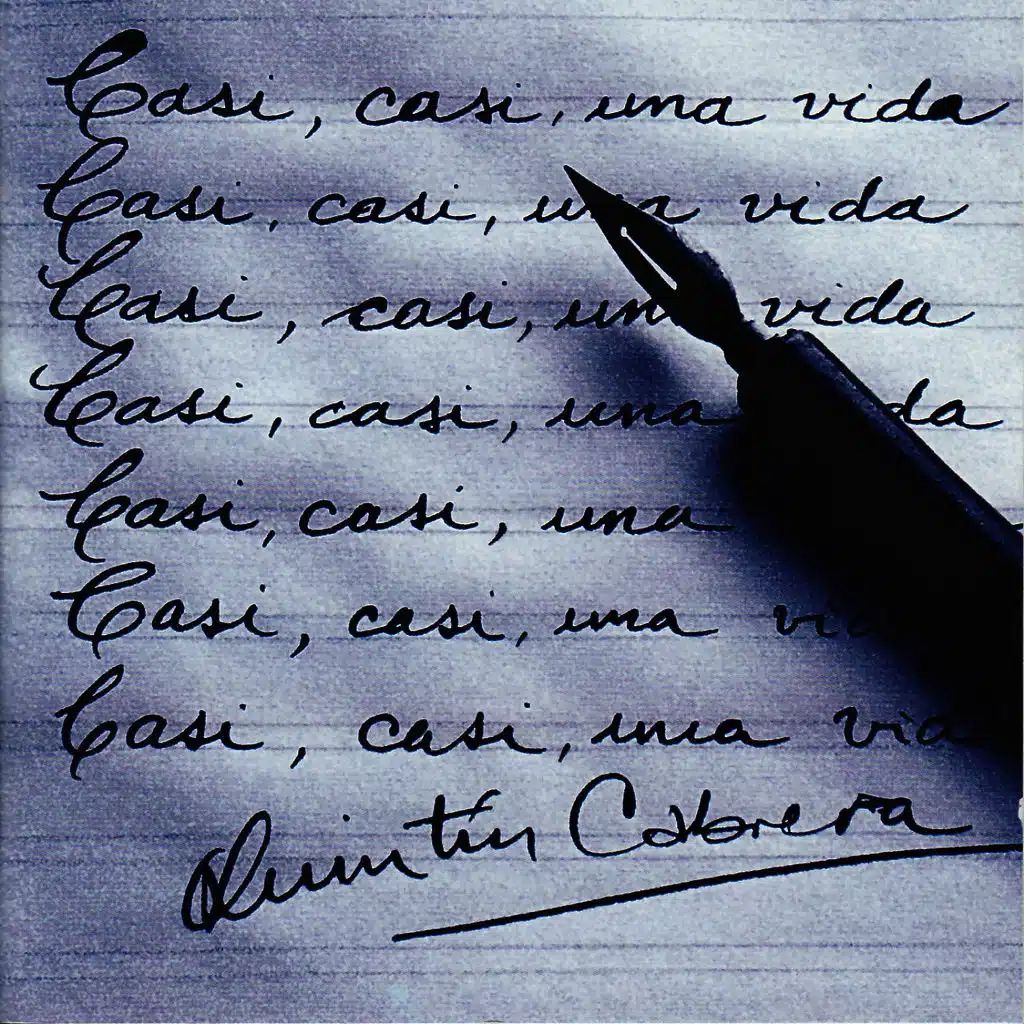 Casi, casi, una vida
Casi, casi, una vida
Casi, casi, una vida
Casi, casi, una da
Casi, casi, una
Casi, casi, una vid
Casi, casi, una vida
Quintín Cabrera